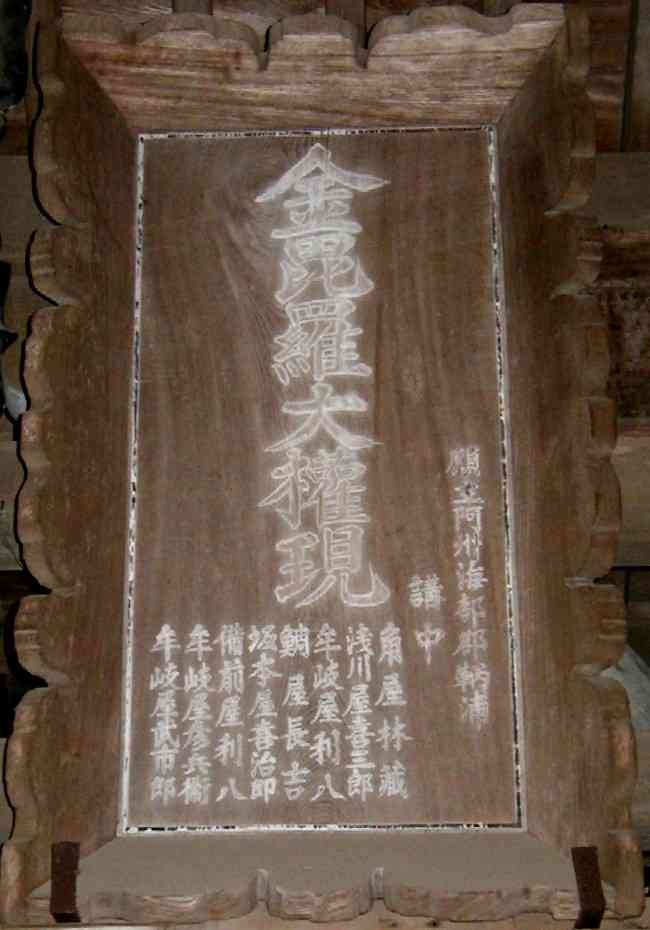 金毘羅大権現
願主阿州海部郡鞆浦
講中
角屋林藏
浅川屋喜三郎
牟岐屋利八
鯛屋長吉
坂本屋喜治郎
備前屋利八
牟岐屋彦兵衛
牟岐屋武市郎